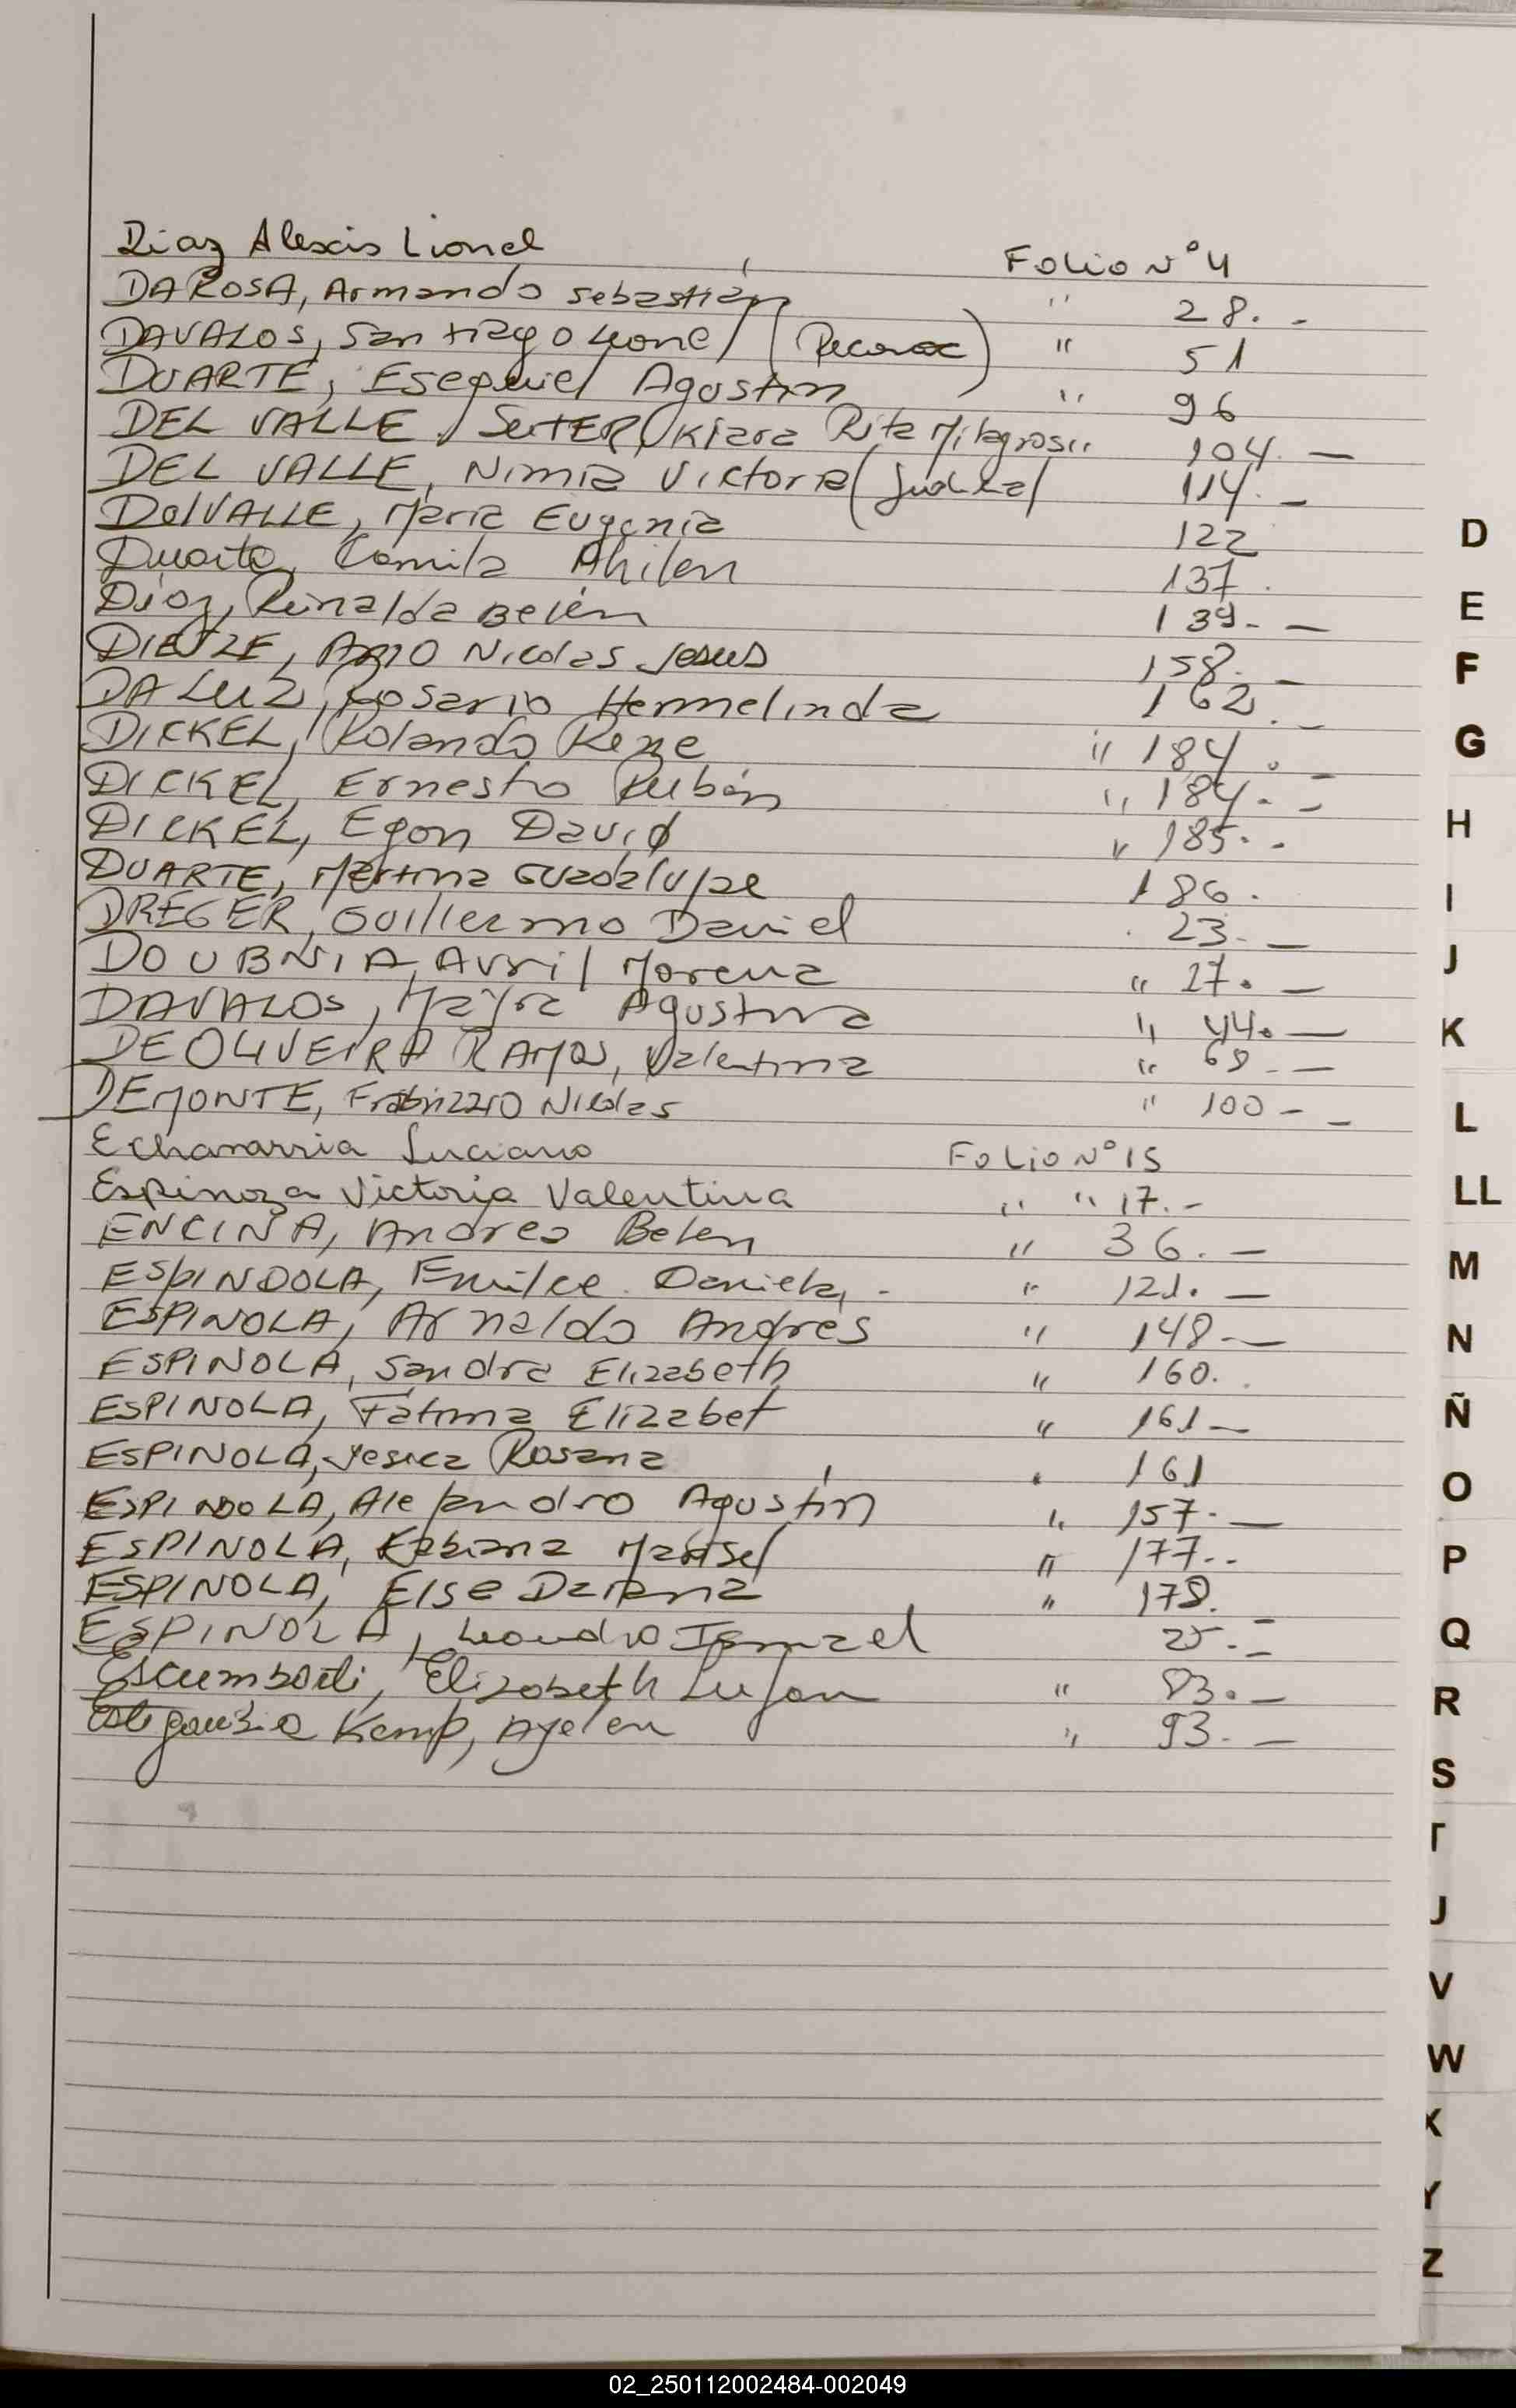 Diaz Alexis Lionel Folio N° 4
DAROSA, Armando Sebastián " 28. -
DAVALOS, Santiago Leonel (Reconoc) " 51
DUARTE, Esequiel Agostin " 96
DEL VALLE, SeitER, Kiara Rita Milagros " 104. —
DEL VALLE, Nimia Victoria (Judicial 114. -
DelVALLE, Maria Eugenia 122
Duarte, Camila Ahilen 137.
Díaz, Reinalda Belén 139. —
DIETZE, Nicolas Jesus 158. -
DA LUZ, Rosario Hermelinda 162. -
DICKEL, Rolando Rene " 184. -
DICKEL, Ernesto Rubén " 184. -
DICKEL, Egon David " 185. -
DUARTE, Martina Guadalupe 186.
DREGER, Guillermo Daniel 23. —
DOUBNIA, Avril Morena " 27. —
DAVALOS, Mayra Agustina " 44. —
DE OLIVEIRA RAMOS, Valentina " 69. —
DEMONTE, Frabrizzio Nicolas " 100 - -
Echavarria Luciano Folio N° 15
Espinoza Victoria Valentina " " 17. -
ENCINA, Andrea Belen " 36. —
ESPINDOLA, Emilce Daniela, - " 121. —
ESPINOLA, Arnaldo Andres " 148. —
ESPINOLA, Sandra Elizabeth " 160.
ESPINOLA, Fátima Elizabet " 161 —
ESPINOLA, Yesica Rosana " 161
ESPINDOLA, Alejandro Agustín " 157. —
ESPINOLA, Fabiana Marisel " 177. -
ESPINOLA, Else Daiana " 178. -
ESPINOLA, Leandro Ismael 25. -
Escumbarti, Elizabeth Lujan " 83. —
Kemp, Ayelen " 93. —
D
E
F
G
H
I
J
K
L
LL
M
N
Ñ
O
P
Q
R
S
T
J
V
W
X
Y
Z
02_250112002484-002049